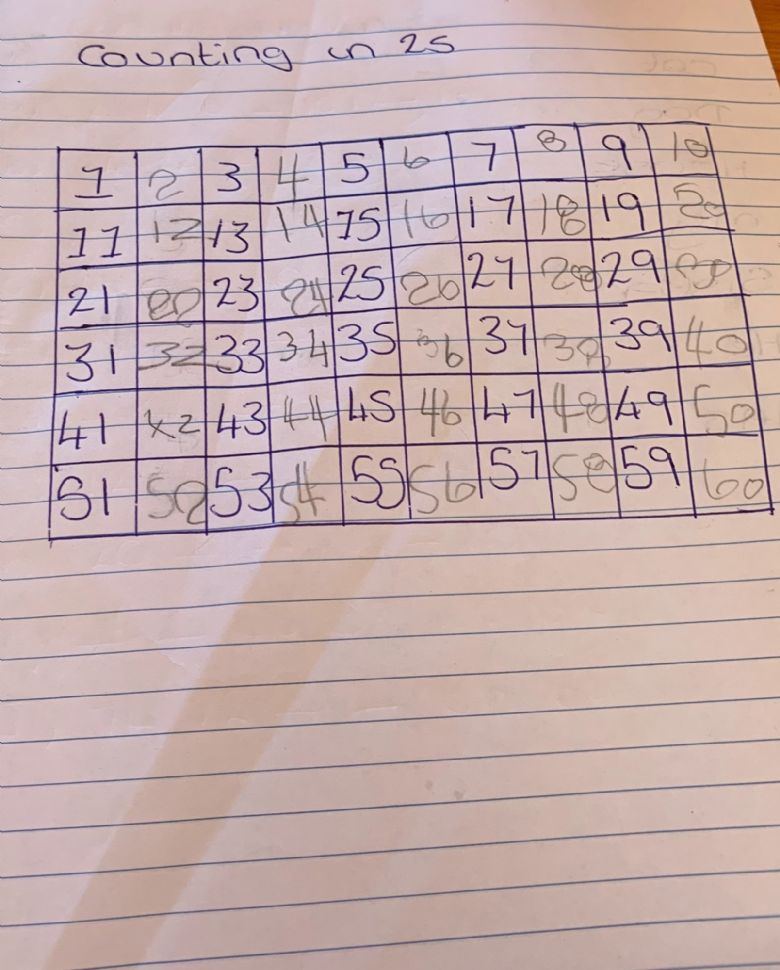 Counting in 2s
1 2 3 4 5 6 7 8 9 10
11 12 13 14 15 16 17 18 19 20
21 23 24 25 26 27 28 29 30
31 32 33 34 35 36 37 38 39 40
41 42 43 44 45 46 47 48 49 50
51 52 53 54 55 56 57 58 59 60